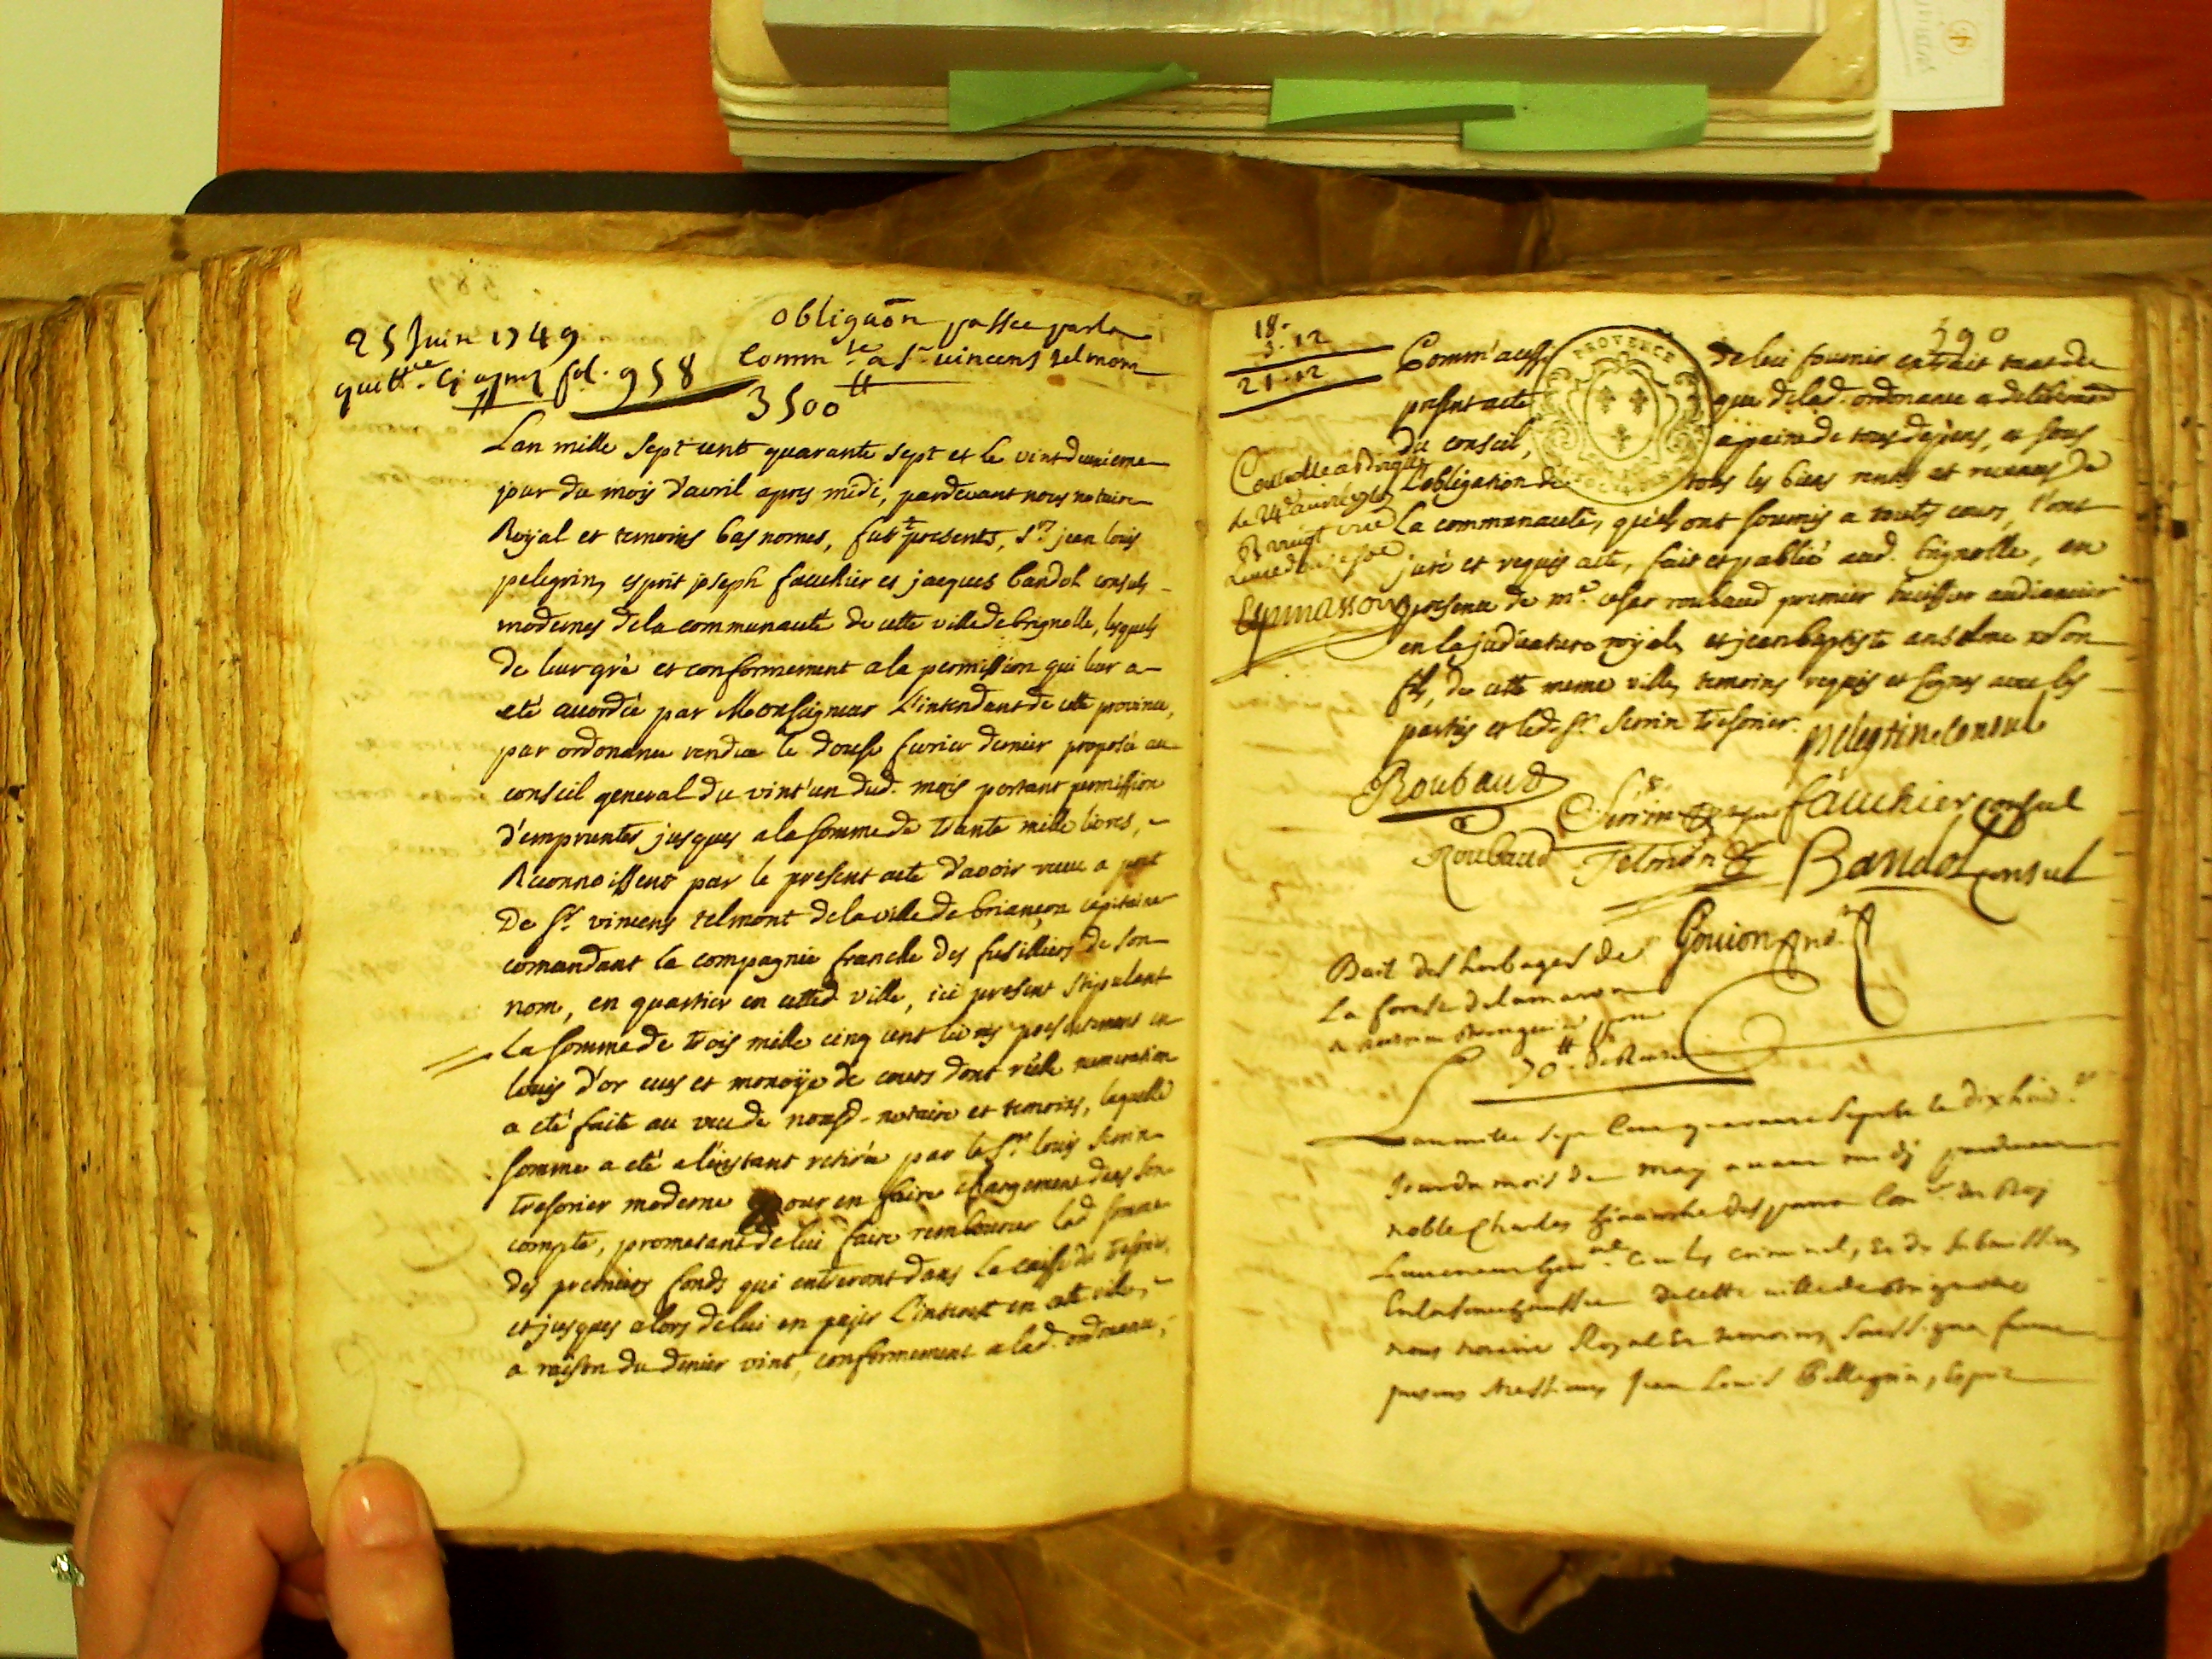 25 Juin 1749
quitt.ce cy apres fol. 958
obligaõn passée par la
Comm.te a Sr vincens telmon
3500 ₶
Lan mille sept cent quarante sept et le vint deuxieme
jour du mois d'avril apres midi, pardevant nous notaire
Royal et temoins bas nomes, furt presents, Sr jean louis
pelegrin, esprit joseph fauchier et jacques bandol consuls
modernes de la communauté de cette ville de brignolle, lesquels
de leur gré et conformement a la permission qui leur a
eté accordée par Monseigneur L'intendant de cette province,
par ordonance rendue le douse fevrier dernier proposée au
conseil general du vint'un dud. mois portant permission
d'emprunter jusques a la somme de trante mille livres,
Reconnoissent par le present acte d'avoir receu a pret
De Sr. vincens telmont de la ville de briançon capitaine
comandant la compagnie franche des fusilliers de son
nom, en quartier en cetted. ville, ici present stipulant
La somme de trois mille cinq cent livres presentement en
louis d'or ecus et monoÿe de cours dont réele numeration
a eté faite au veu de nousd. notaire et temoins, laquelle
somme a eté a l'instant retirée par le Sr. louis Serrin
tresorier moderne pour en faire chargement dans son
compte, prometant de lui faire rembourcer lad. somme
des premiers fonds qui entreront dans la caisse du tresorier,
et jusques alors de lui en payer L'interest en cette ville,
a raison du denier vint, conformement a lad. ordonance,
590
18.
3. 12
21. 12
PROVENCE
Comm'aussy de lui fournir extrait tant du
present acte que de lad. ordonance et deliberaõn
du conseil, a paine de tous depens, et sous
L'obligation de tous les biens rentes et revenus de
La communauté, qu'ils ont soumis a toutes cours, l'ont
juré et requis acte, fait et publié aud. brignolle, en
presence de me. cesar roubaud premier huissier audiancier
en la judicature royale et jean baptiste anselme son
fils, de cette meme ville, temoins requis et signes avec les
parties et led. Sr. Serrin tresorier.
Controllé a Brignolle
le 24 avril 1747
Pelegrin Consul
Roubaud
Serrin
fauchier consul
Roubaud
Telmon
Bandol consul
Gouion no.re
Bail des herbages de
La forest de lamaron
70 ₶ de Rente
L'an mille sept Cens quarante Sept et le dix huit.e
Jour du mois de may avant midy pardevant
noble Charles des parra Con.er du Roy
Lieutenant Gen.al Civil et criminel, Et de Submissions
En la Senechaussee de cette ville de Brignolle
nous notaire Royal Et temoins Soussignes furent
presens Messieurs Jean Louis Pellegrin, Esprit